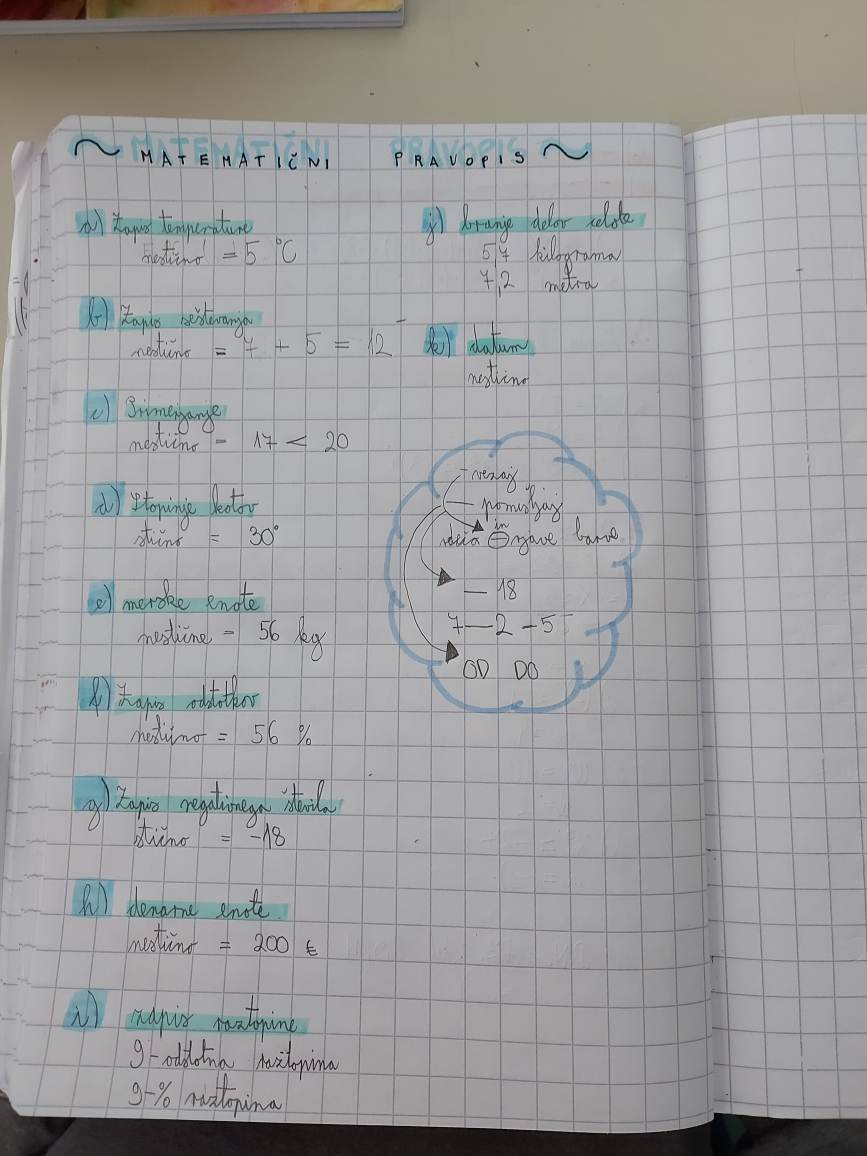 ~ MATEMATIČNI PRAVOPIS ~
a) Zapis temperature
nestično = 5 °C
b) Zapis seštevanja
nestično = 7 + 5 = 12
c) Primerjanje
nestično = 17 < 20
d) Stopinje kotov
stično = 30°
e) merske enote
nestične = 56 kg
f) Zapis odstotkov
nestično = 56 %
g) Zapis negativnega števila
stično = -18
h) denarne enote
nestično = 200 €
i) zapis raztopine
9-odstotna raztopina
9-% raztopina
j) branje delov celote
5,7 kilograma
7,2 metra
k) datum
nestično
- vezaj
— pomišljaj
in
rdeča – zave barve
— 18
7 — 2 - 5
OD DO